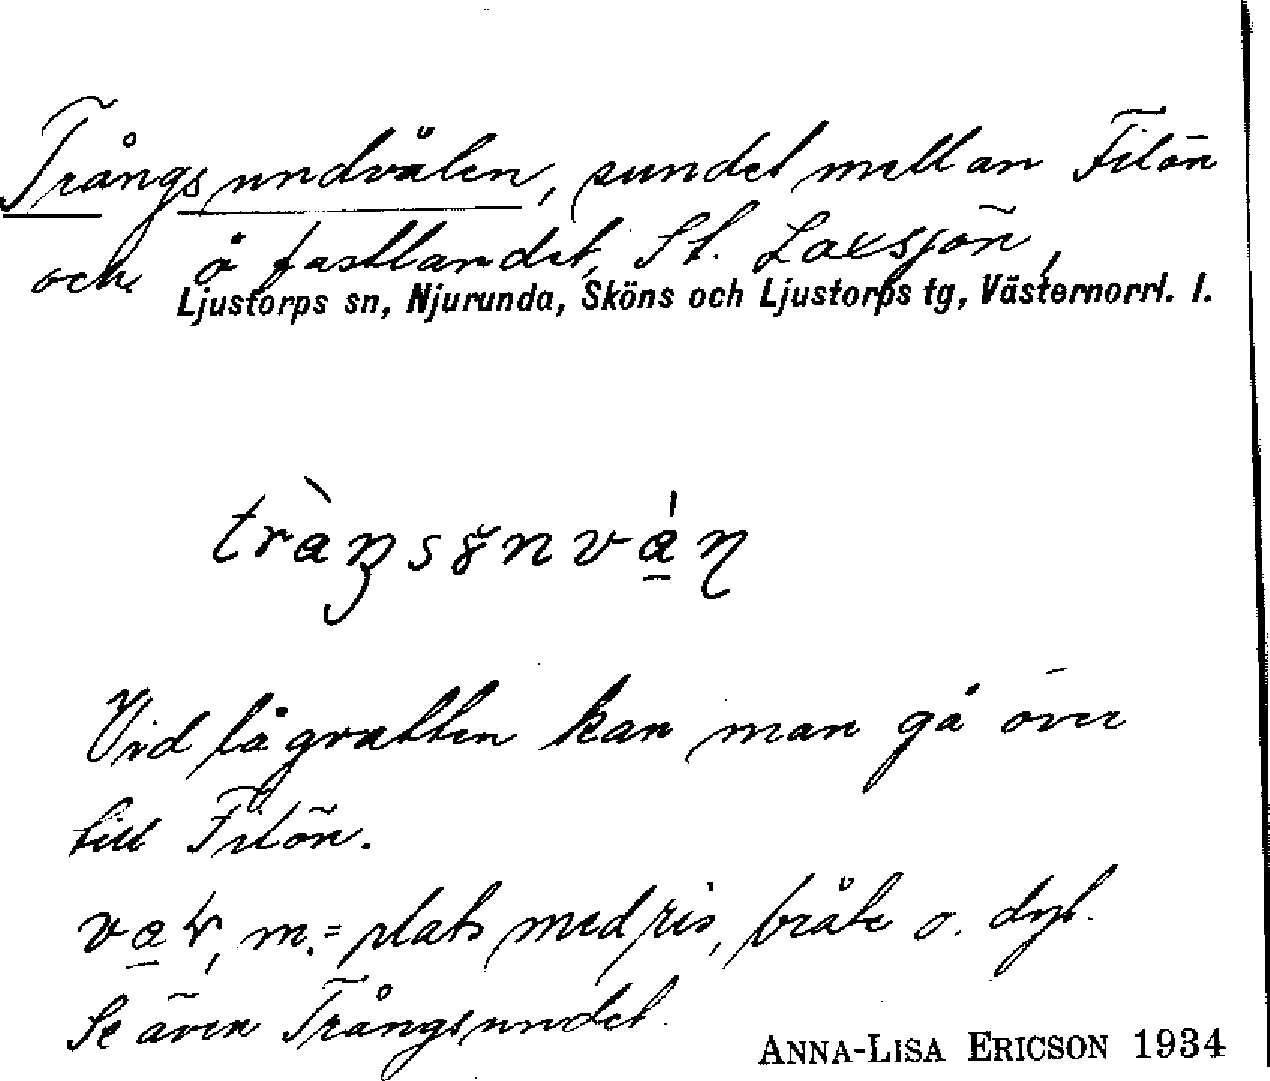 Trångsundvålen, sundet mellan Filön
och å fastlandet, St. Laxsjön,
Ljustorps sn, Njurunda, Sköns och Ljustorps tg, Västernorrl. l.
Vid lågvatten kan man gå över
till Filön.
m. = plats med ris, bråte o. dyl.
Se även Trångsundet.
ANNA-LISA ERICSON 1934